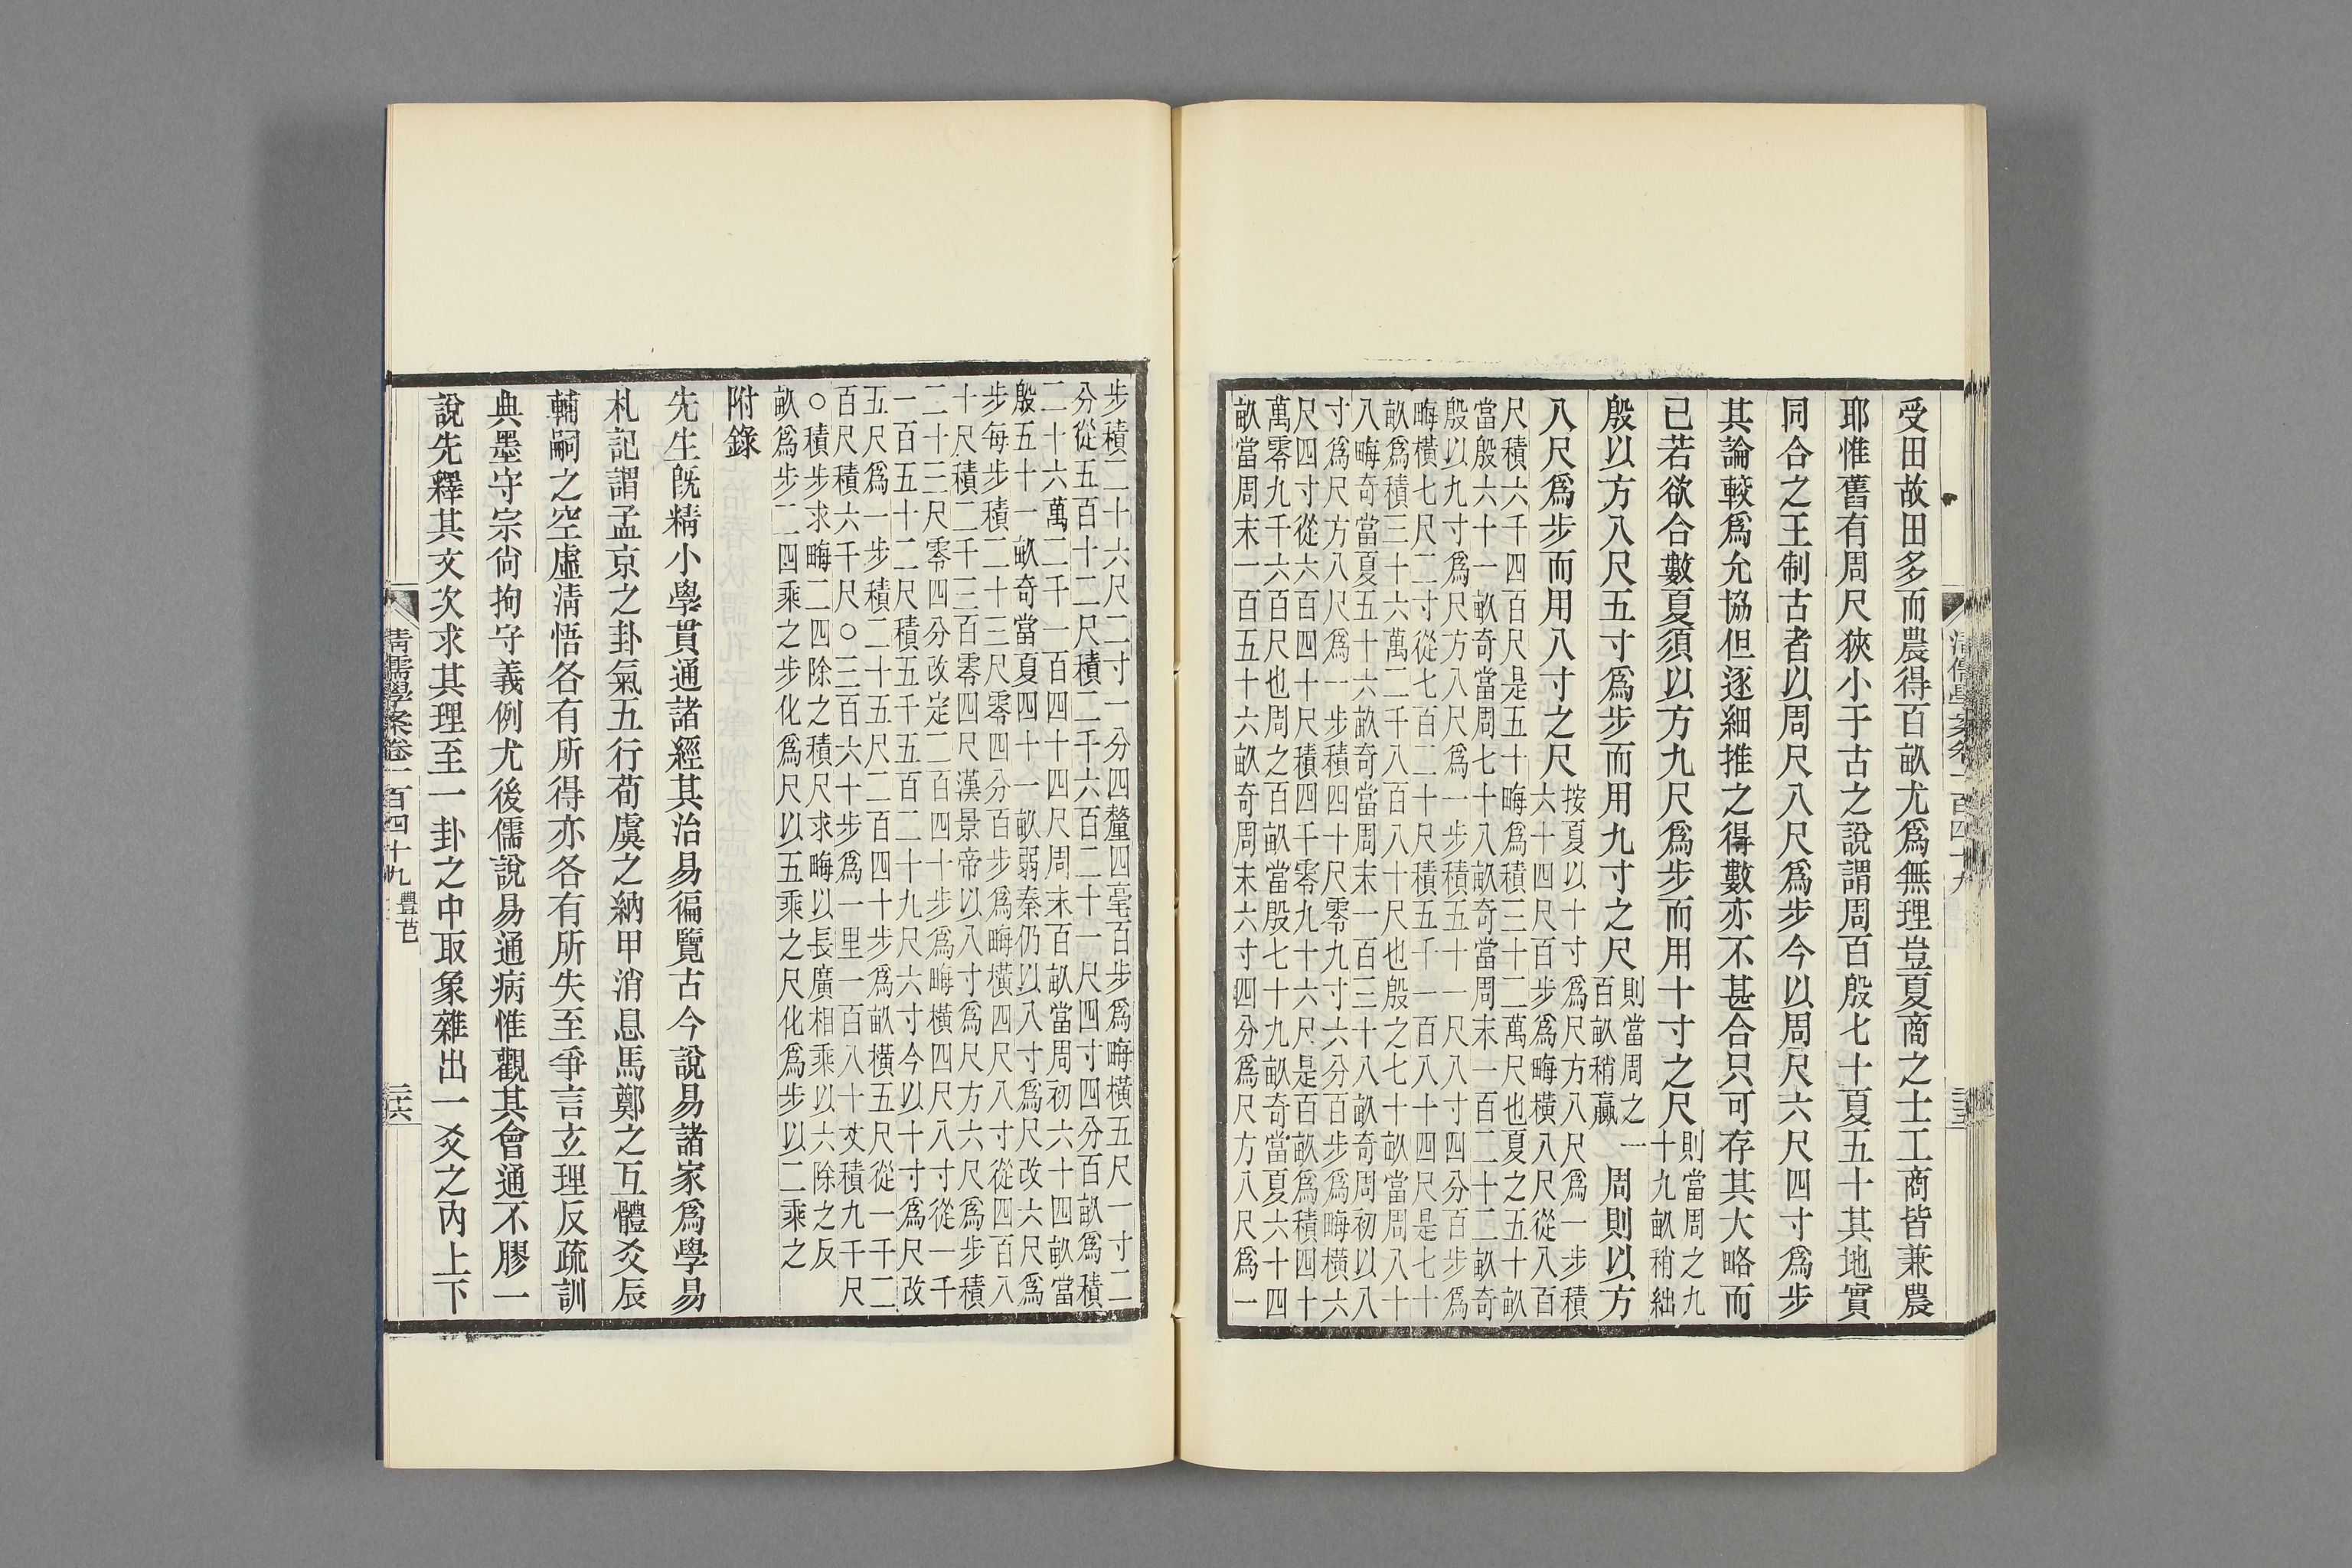 受田故田多而農得百畝尤爲無理豈夏商之士工商皆兼農
耶惟舊有周尺狹小于古之說謂周百殷七十夏五十其地實
同合之王制古者以周尺八尺爲步今以周尺六尺四寸爲步
其論較爲允協但逐細推之得數亦不甚合只可存其大略而
已若欲合數夏須以方九尺爲步而用十寸之尺
則當周之九
十九畝稍絀
殷以方八尺五寸爲步而用九寸之尺
則當周之一
百畝稍贏
周則以方
八尺爲步而用八寸之尺
按夏以十寸爲尺方八尺爲一步積
六十四尺百步爲畮橫八尺從八百
尺積六千四百尺是五十畮爲積三十二萬尺也夏之五十畝
當殷六十一畝奇當周七十八畝奇當周末一百二十二畝奇
殷以九寸爲尺方八尺爲一步積五十一尺八寸四分百步爲
畮橫七尺二寸從七百二十尺積五千一百八十四尺是七十
畝爲積三十六萬二千八百八十尺也殷之七十畝當周八十
八畮奇當夏五十六畝奇當周末一百三十八畝奇周初以八
寸爲尺方八尺爲一步積四十尺零九寸六分百步爲畮橫六
尺四寸從六百四十尺積四千零九十六尺是百畝爲積四十
萬零九千六百尺也周之百畝當殷七十九畝奇當夏六十四
畝當周末一百五十六畝奇周末六寸四分爲尺方八尺爲一
步積二十六尺二寸一分四釐四毫百步爲畮橫五尺一寸二
分從五百十二尺積二千六百二十一尺四寸四分百畝爲積
二十六萬二千一百四十四尺周末百畝當周初六十四畝當
殷五十一畝奇當夏四十一畝弱秦仍以八寸爲尺改六尺爲
步每步積二十三尺零四分百步爲畮橫四尺八寸從四百八
十尺積二千三百零四尺漢景帝以八寸爲尺方六尺爲步積
二十三尺零四分改定二百四十步爲畮橫四尺八寸從一千
一百五十二尺積五千五百二十九尺六寸今以十寸爲尺改
五尺爲一步積二十五尺二百四十步爲畝橫五尺從一千二
百尺積六千尺○三百六十步爲一里一百八十丈積九千尺
○積步求畮二四除之積尺求畮以長廣相乘以六除之反
畝爲步二四乘之步化爲尺以五乘之尺化爲步以二乘之
附錄
先生既精小學貫通諸經其治易徧覽古今說易諸家爲學易
札記謂孟京之卦氣五行荀虞之納甲消息馬鄭之互體爻辰
輔嗣之空虛清悟各有所得亦各有所失至爭言玄理反疏訓
典墨守宗尙拘守義例尤後儒說易通病惟觀其會通不膠一
說先釋其文次求其理至一卦之中取象雜出一爻之內上下
清儒學案卷一百四十九 豐芑
二十六